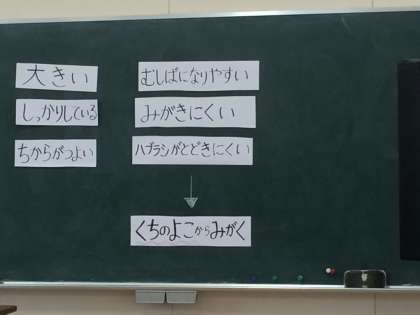 大きい
しっかりしている
ちからがつよい
むしばになりやすい
みがきにくい
ハブラシがとどきにくい
くちのよこからみがく